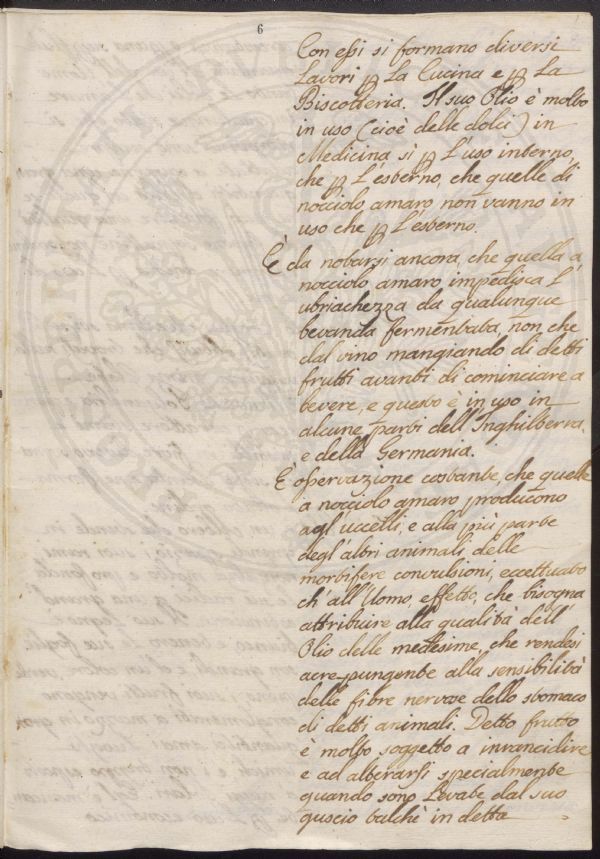 6
Con essi si formano diversi
Lavori ꝑ La Cucina e ꝑ La
Biscotteria. Il suo Olio è molto
in uso (cioè delle dolci) in
Medicina sì ꝑ L'uso interno,
che ꝑ L'esterno, che quelle di
nocciolo amaro non vanno in
uso che ꝑ L'esterno.
È da notarsi ancora, che quella à
nocciolo amaro impedisca l'
ubriachezza da qualunque
bevanda fermentata, non che
dal vino mangiando di detti
frutti avanti di cominciare a
bevere, e questo è in uso in
alcune parti dell'Inghilterra,
e della Germania.
È osservazione costante, che quelle
a nocciolo amaro producono
agl'uccelli, e alla più parte
degl'altri animali, delle
morbifere convulsioni, eccettuato
ch'all'Uomo, effetto, che bisogna
attribuire alla qualità dell'
Olio delle medesime, che rendesi
acre pungente alla sensibilità
delle fibre nervose dello stomaco
di detti animali. Detto frutto
è molto soggetto a invrancidire
e ad alterarsi specialmente
quando sono Levate dal suo
guscio talchè in detta